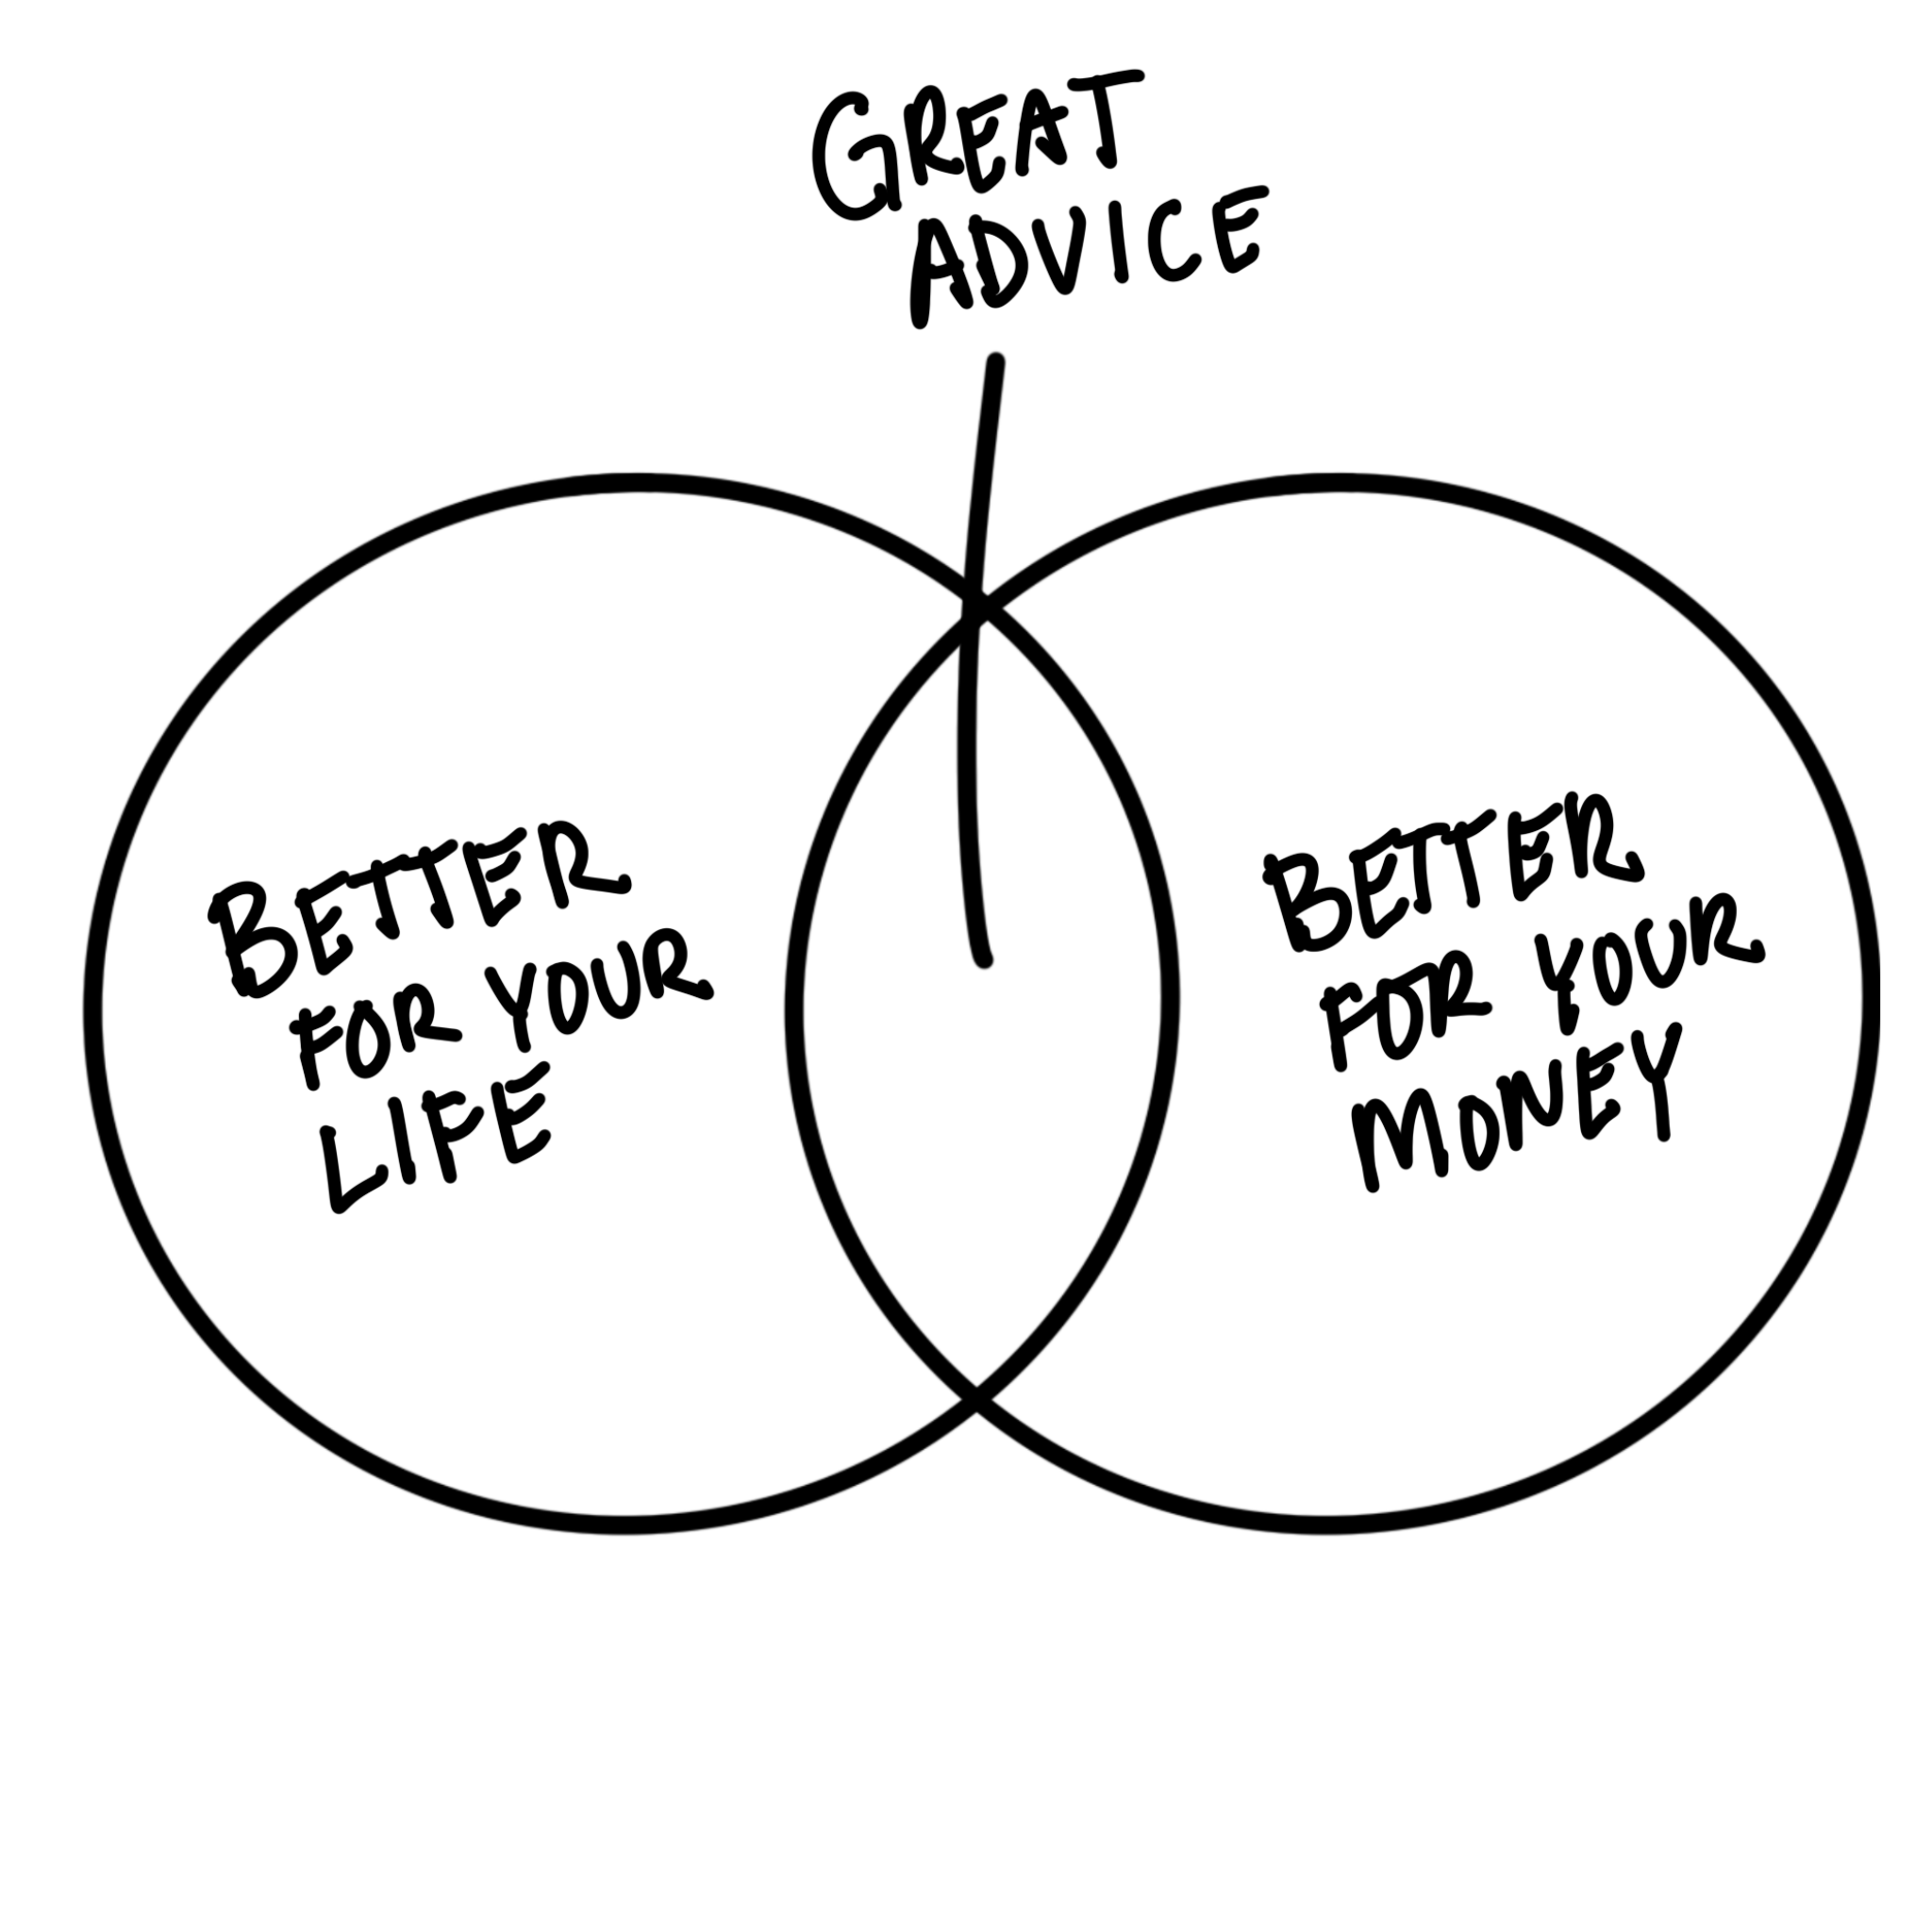 GREAT
ADVICE
BETTER
FOR YOUR
LIFE
BETTER
FOR YOUR
MONEY